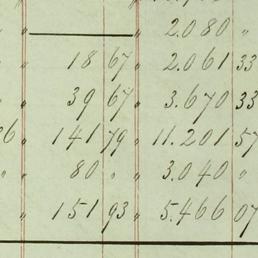 " " 2.080 "
" 18 67 " 2.061 33
" 39 67 " 3.670 33
26 " 141 79 " 11.201 57
" " 80 " " 3.040 "
" 151 93 " 5.466 07